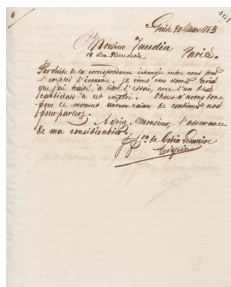 Guise 10 Mars 1883
Monsieur Jaudin
Paris
Par suite de la correspondance échangée entre nous pour
l'emploi d'économe, je vous
que j'ai traité, à titre d'essai, avec l'un des
candidats à cet emploi. Nous n'avons donc
pour le moment aucune raison de continuer nos
pourparlers.
Agréez, Monsieur, l'assurance
de ma considération.